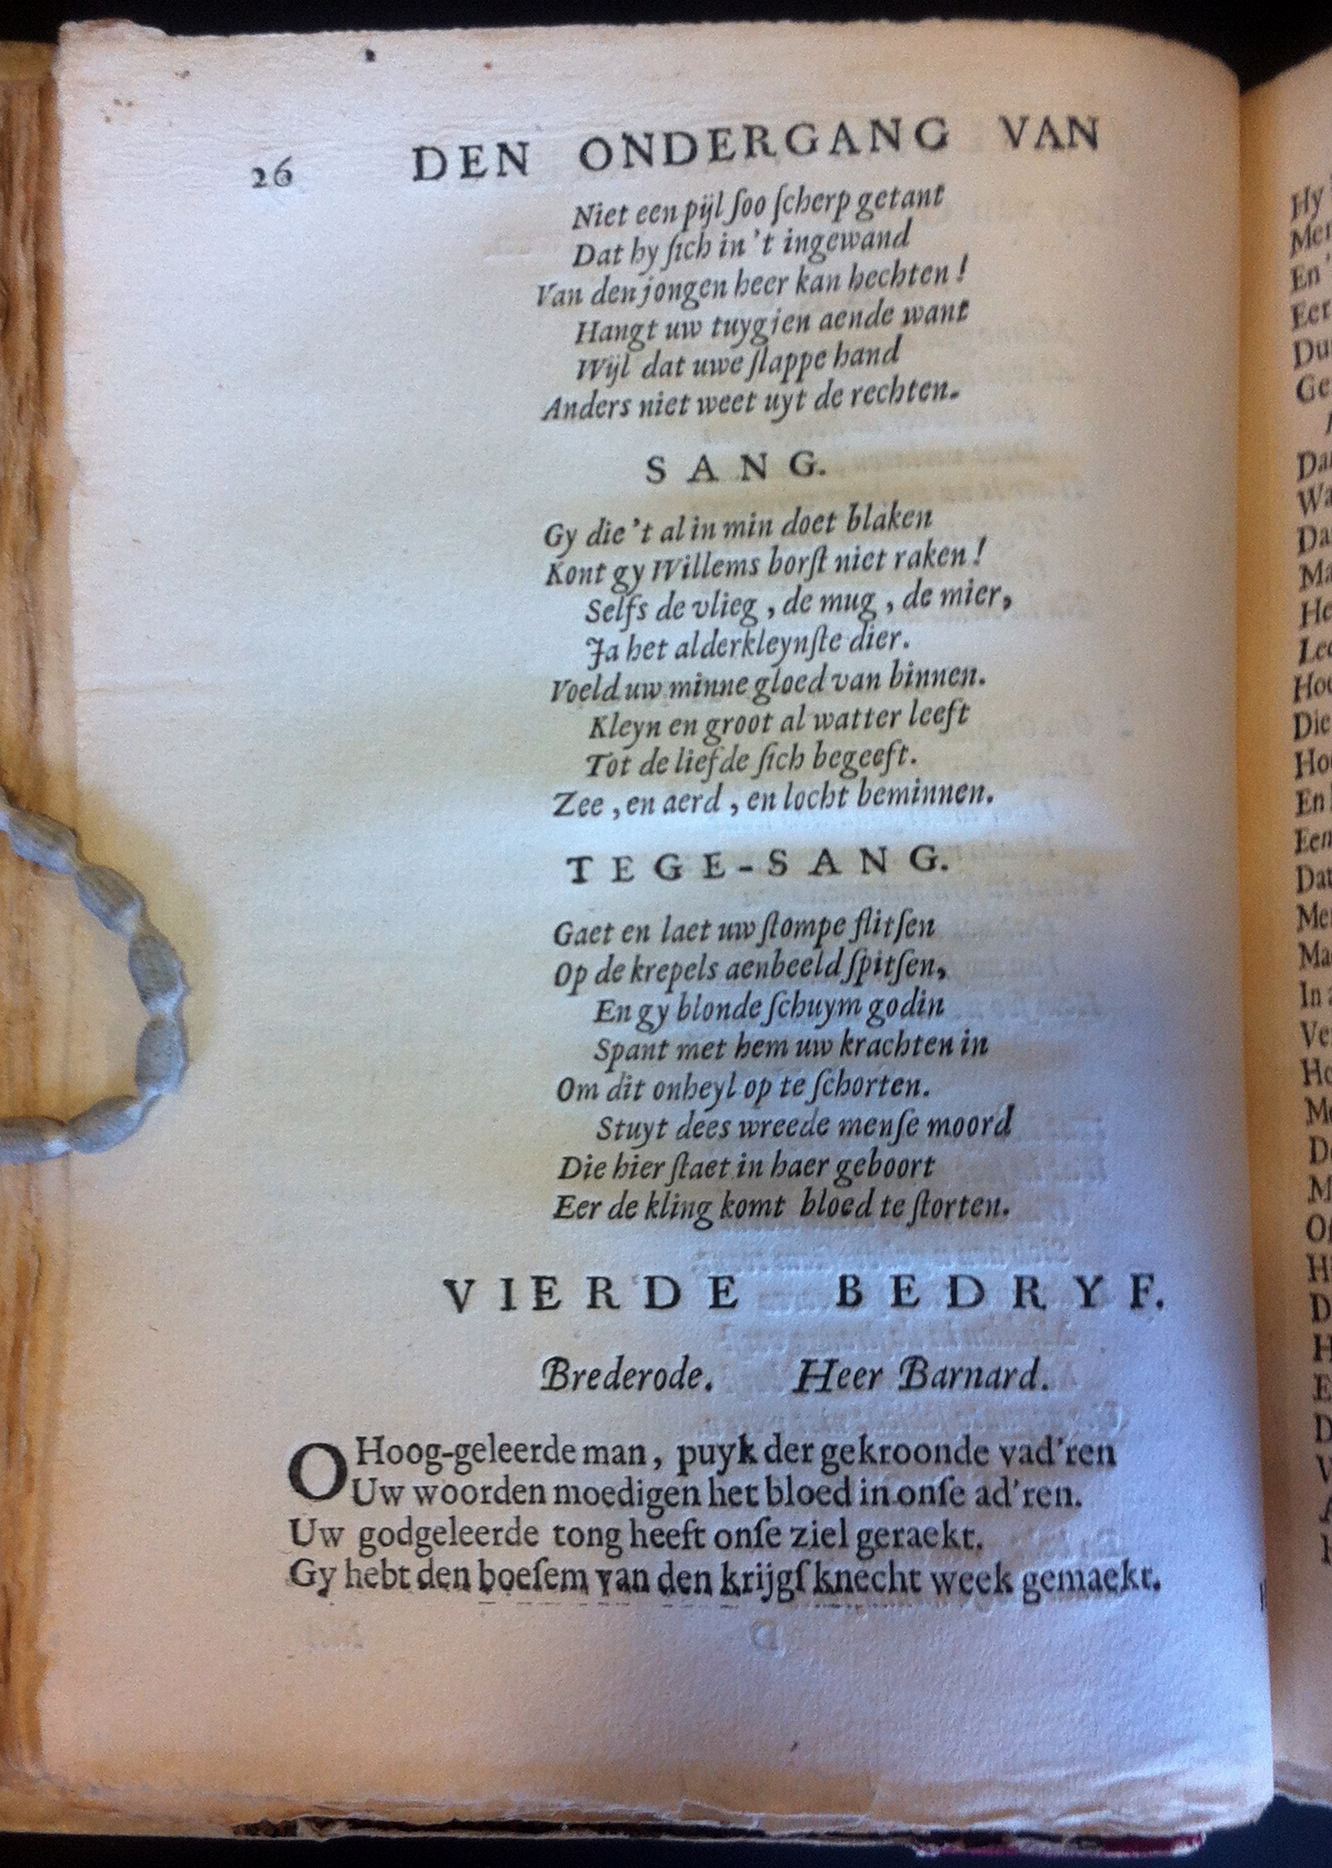 26 DEN ONDERGANG VAN
Niet een pijl ſoo ſcherp getant
Dat hy ſich in 't ingewand
Van den jongen heer kan hechten!
Hangt uw tuygjen aende want
Wijl dat uwe ſlappe hand
Anders niet weet uyt de rechten.
SANG.
Gy die 't al in min doet blaken
Kont gy Willems borſt niet raken!
Selfs de vlieg, de mug, de mier,
Ja het alderkleynſte dier.
Voeld uw minne gloed van binnen.
Kleyn en groot al watter leeft
Tot de liefde ſich begeeft.
Zee, en aerd, en locht beminnen.
TEGE-SANG.
Gaet en laet uw ſtompe flitſen
Op de krepels aenbeeld ſpitſen,
En gy blonde ſchuym godin
Spant met hem uw krachten in
Om dit onheyl op te ſchorten.
Stuyt dees wreede menſe moord
Die hier ſtaet in haer geboort
Eer de kling komt bloed te ſtorten.
VIERDE BEDRYF.
Brederode. Heer Barnard.
O Hoog-geleerde man, puyk der gekroonde vad'ren
Uw woorden moedigen het bloed in onſe ad'ren.
Uw godgeleerde tong heeft onſe ziel geraekt.
Gy hebt den boeſem van den krijgſ knecht week gemaekt.
Hy
En
Die
En
In